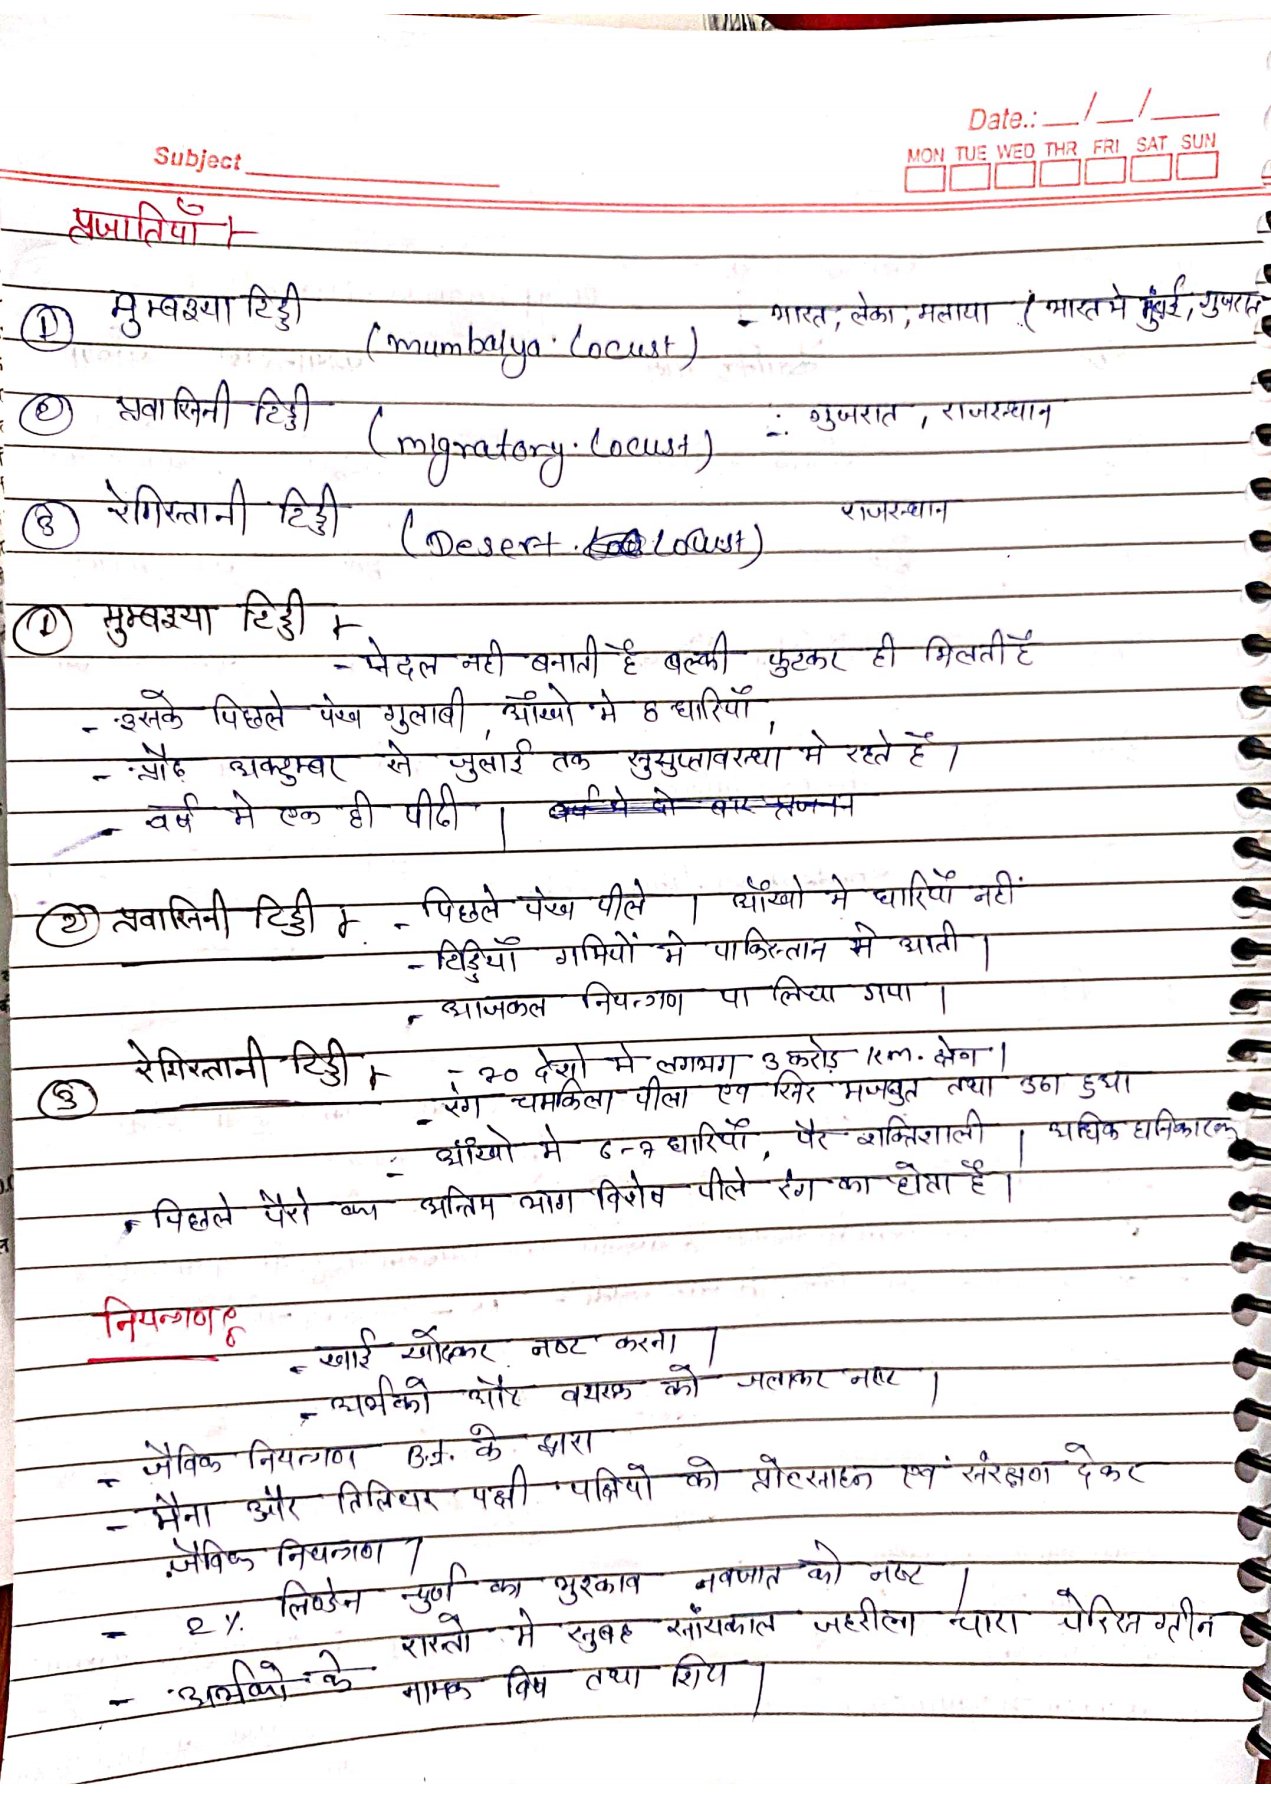 Date.: __/__/__
Subject
MON TUE WED THR FRI SAT SUN
प्रजातियाँ :-
① मुम्बइया टिड्डी (Mumbaiya. Locust) - भारत, लंका, मलाया ( भारत मे मुंबई, गुजरात
② प्रवासिनी टिड्डी (Migratory. Locust) :- गुजरात, राजस्थान
③ रेगिस्तानी टिड्डी (Desert. Locust) राजस्थान
① मुम्बइया टिड्डी :-
- पेदल नही बनाती है बल्की फुटकर ही मिलती है
- इसके पिछले पंख गुलाबी, आँखो मे 8 धारियाँ,
- प्रौढ़ अक्टुम्बर से जुलाई तक सुसुप्तावस्था मे रहते है।
- वर्ष मे एक ही पीढी । वर्ष मे दो बार प्रजनन
② प्रवासिनी टिड्डी :- - पिछले पंख पीले । आँखो मे धारियाँ नहीं
- टिड्डियाँ गर्मियों मे पाकिस्तान से आती।
- आजकल नियन्त्रण पा लिया गया ।
③ रेगिस्तानी टिड्डी :- - 70 देशो मे लगभग 3 करोड़ km. क्षेत्र।
- रंग चमकिला पीला एव सिर मजबुत तथा उठा हुआ
- आँखो मे 6-7 धारियाँ, पैर शक्तिशाली । अधिक हानिकारक
- पिछले पैरो का अन्तिम भाग विशेष पीले रंग का होता है।
नियन्त्रण :-
- खाई खोदकर नष्ट करना ।
- अर्भको और वयस्क को जलाकर नष्ट ।
- जैविक नियन्त्रण B.t. के द्वारा
- मैना और तिलियर पक्षी पक्षियो को प्रोत्साहन एवं संरक्षण देकर
जैविक नियन्त्रण ।
- 2% लिण्डेन चुर्ण का भुरकाव नवजात को नष्ट ।
- अर्भको के रास्तो मे सुबह सांयकाल जहरीला चारा पेरिस ग्रीन
नामक विष तथा शिरा ।